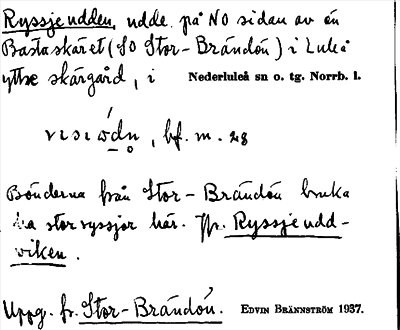 Ryssjeudden, udde på NO sidan av ön
Bastaskäret (SO Stor-Brändön) i Luleå
yttre skärgård, i Nederluleå sn o. tg. Norrb. l.
bf. m. 28
Bönderna från Stor-Brändön bruka
ha storryssjor här. Jfr. Ryssjeudd-
viken.
Uppg. fr. Stor-Brändön. EDVIN BRÄNNSTRÖM 1937.